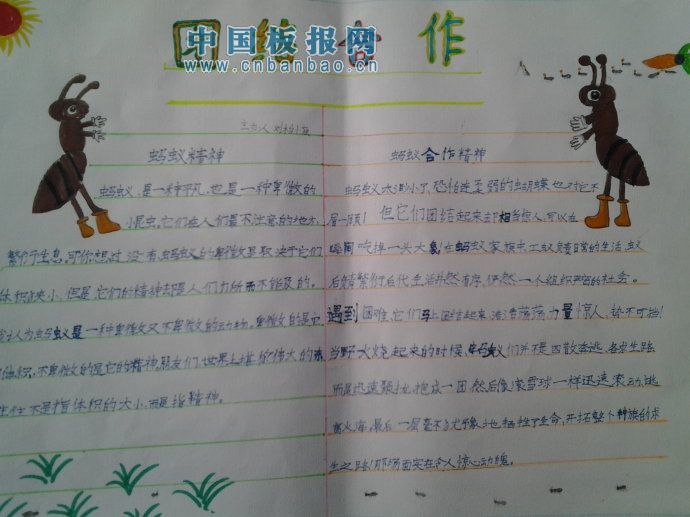 团结合作
中国板报网
www.cnbanbao.cn
主办人
蚂蚁精神
蚂蚁,是一种平凡,也是一种卑微的
小昆虫,它们在人们最不注意的地方,
繁衍生息,可你想过没有蚂蚁的卑微是取决于它们
体积的狭小,但是它们的精神却是人们力所而不能及的。
认为蚂蚁是一种卑微又不卑微的动物。卑微的是它
体积,不卑微的是它的精神。朋友们,世界上堪称伟大的
往往不是指体积的大小,而是指精神。
蚂蚁合作精神
蚂蚁太渺小了,恐怕连柔弱的蝴蝶也对它不
屑一顾!但它们团结起来却相当惊人,可以在
瞬间吃掉一头大象,在蚂蚁家族中工蚁负责日常的生活,蚁
后负责繁衍后代生活井然有序,俨然一个组织严密的社会。
遇到困难,它们马上团结起来浩浩荡荡,力量惊人,势不可挡!
当野火烧起来的时候,蚂蚁们并不是四散奔逃,各求生路
而是迅速聚拢,抱成一团,然后像滚雪球一样迅速滚动,逃
离火海,最后一层毫不犹豫地牺牲了生命,开拓整个种族的求
生之路!那场面实在令人惊心动魄。